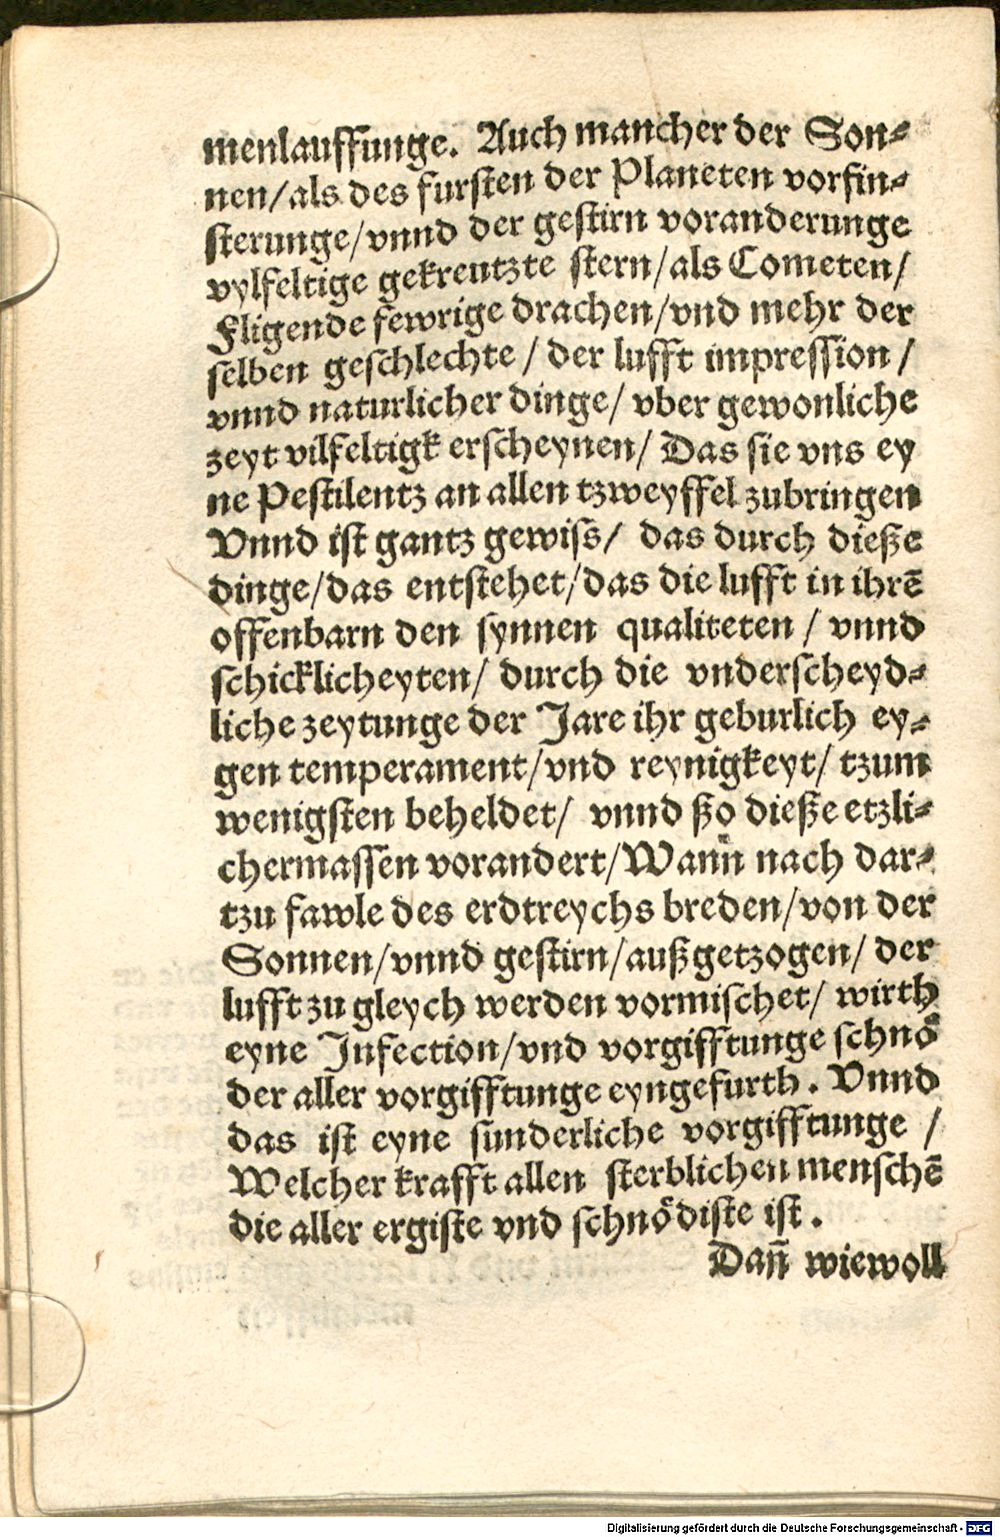 menlauffunge. Auch mancher der Son⸗
nen/als des fursten der Planeten vorfin⸗
sterunge/vnnd der gestirn voranderunge
vylfeltige gekreutzte stern/als Cometen/
Fligende fewrige drachen/vnd mehr der
selben geschlechte / der lufft impression /
vnnd naturlicher dinge/ vber gewonliche
zeyt vilfeltigk erscheynen/ Das sie vns ey
ne Pestilentz an allen tzweyffel zubringen
Vnnd ist gantz gewiss/ das durch dieße
dinge/das entstehet/das die lufft in ihrē
offenbarn den synnen qualiteten / vnnd
schicklicheyten/ durch die vnderscheyd⸗
liche zeytunge der Jare ihr geburlich ey⸗
gen temperament/vnd reynigkeyt/ tzum
wenigsten beheldet/ vnnd ßo dieße etzli⸗
chermassen vorandert/Wann nach dar⸗
tzu fawle des erdtreychs breden/von der
Sonnen/vnnd gestirn/außgetzogen/ der
lufft zu gleych werden vormischet/ wirth
eyne Infection/vnd vorgifftunge schnö
der aller vorgifftunge eyngefurth. Vnnd
das ist eyne sunderliche vorgifftunge /
Welcher krafft allen sterblichen menschē
die aller ergiste vnd schnödiste ist.
Dan̄ wiewoll
Digitalisierung gefördert durch die Deutsche Forschungsgemeinschaft - DFG